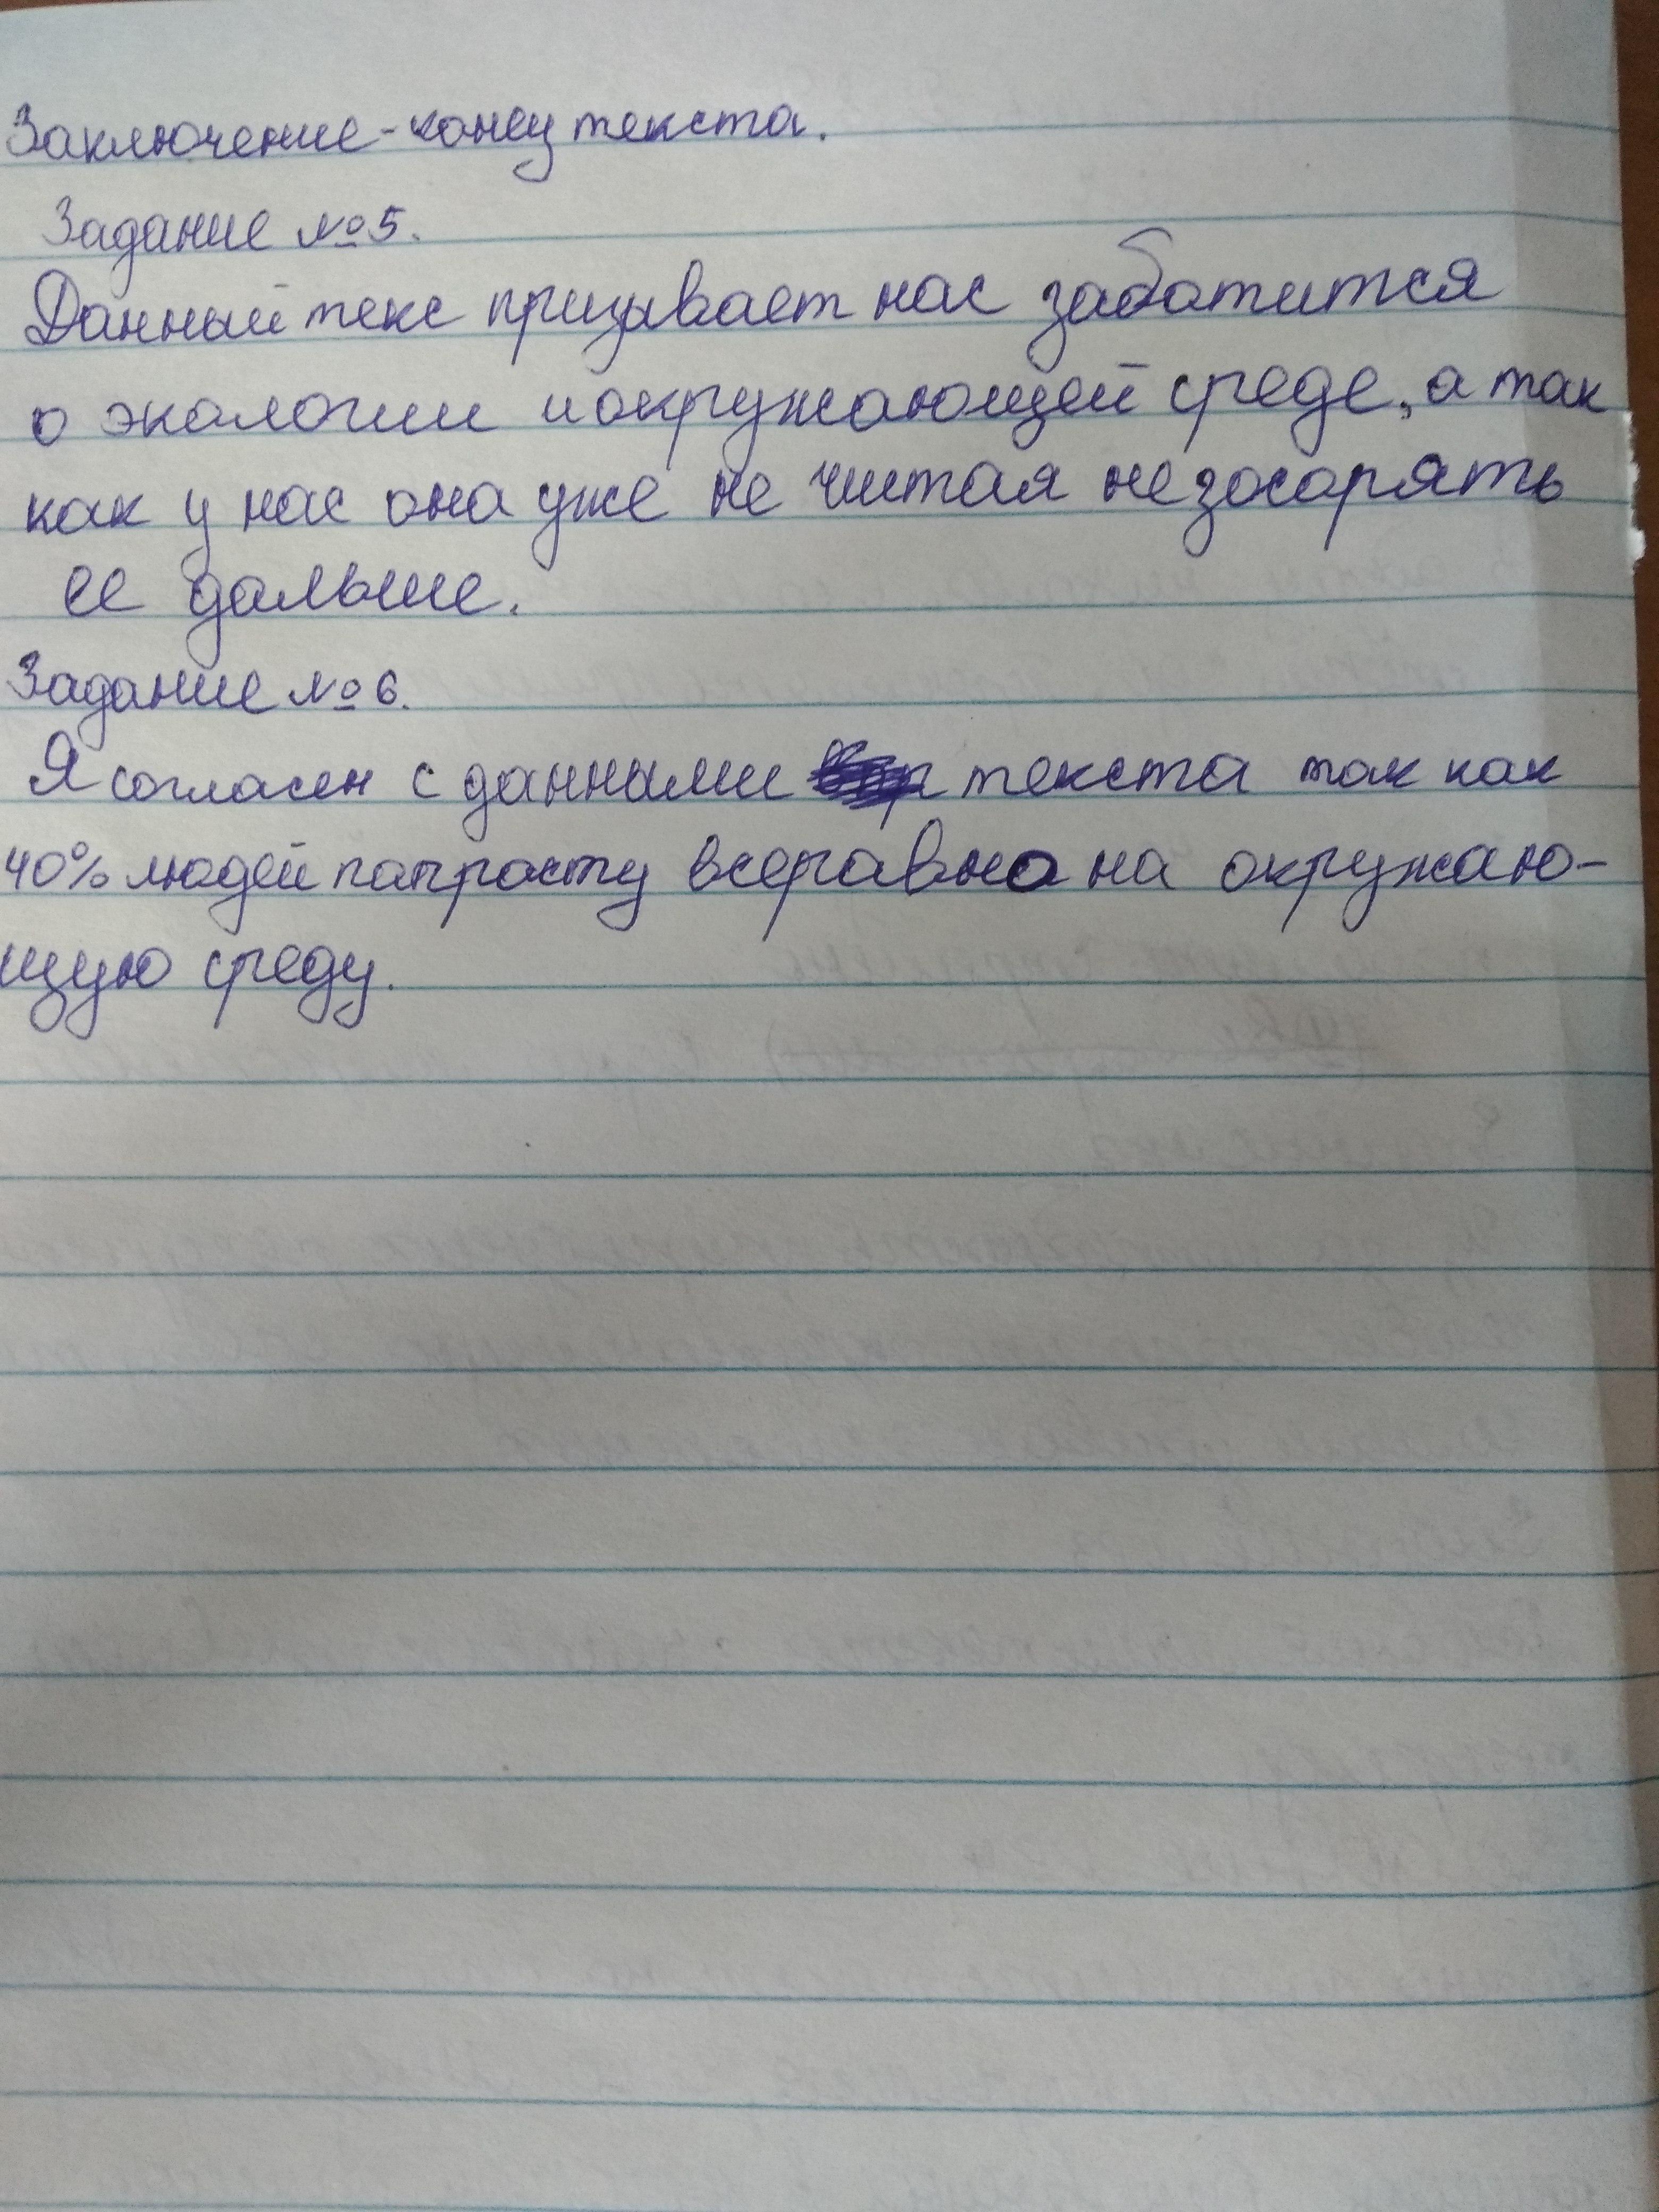 Заключение - конец текста.
Задание №5.
Данный текс призывает нас заботится
о экалогии и окружающей среде, а так
как у нас она уже не читая незосарять
ее дальше.
Задание №6.
Я согласен с данными текста так как
40% людей папрасту всеравно на окружаю-
щую среду.